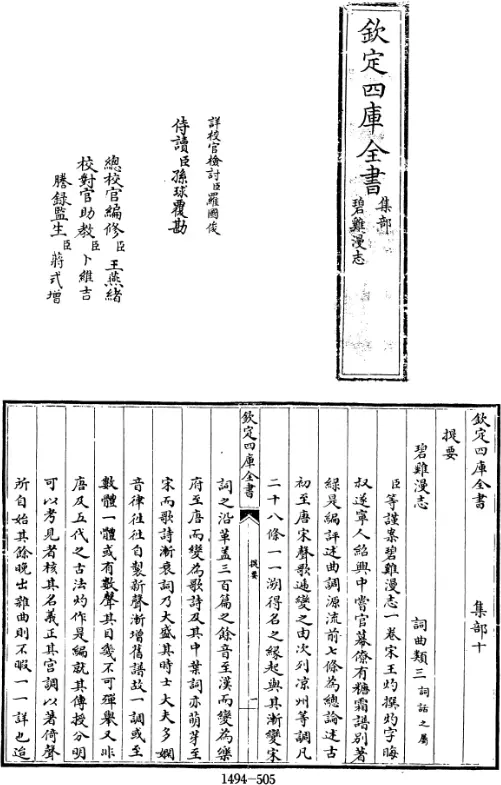 欽定四庫全書
集部
碧雞漫志
詳校官檢討臣羅國俊
侍讀臣孫球覆勘
總校官編修臣王燕緒
校對官助教臣卜維吉
謄錄監生臣蔣式增
欽定四庫全書 集部十
提要
碧雞漫志 詞曲類三詞話之屬
臣等謹案碧雞漫志一卷宋王灼撰灼字晦
叔遂寧人紹興中嘗官幕僚有糖霜譜别著
錄是編評述曲調源流前七條為總論述古
初至唐宋聲歌遞變之由次列凉州等調凡
二十八條一一溯得名之緣起與其漸變宋
欽定四庫全書
提要
一
詞之沿革蓋三百篇之餘音至漢而變為樂
府至唐而變為歌詩及其中葉詞亦萌芽至
宋而歌詩漸衰詞乃大盛其時士大夫多嫻
音律往往自製新聲漸增舊譜故一調或至
數體一體或有數聲其目幾不可殫舉又非
唐及五代之古法灼作是編就其傳授分明
可以考見者核其名義正其宫調以著倚聲
所自始其餘晚出雜曲則不暇一一詳也迨
1494-505